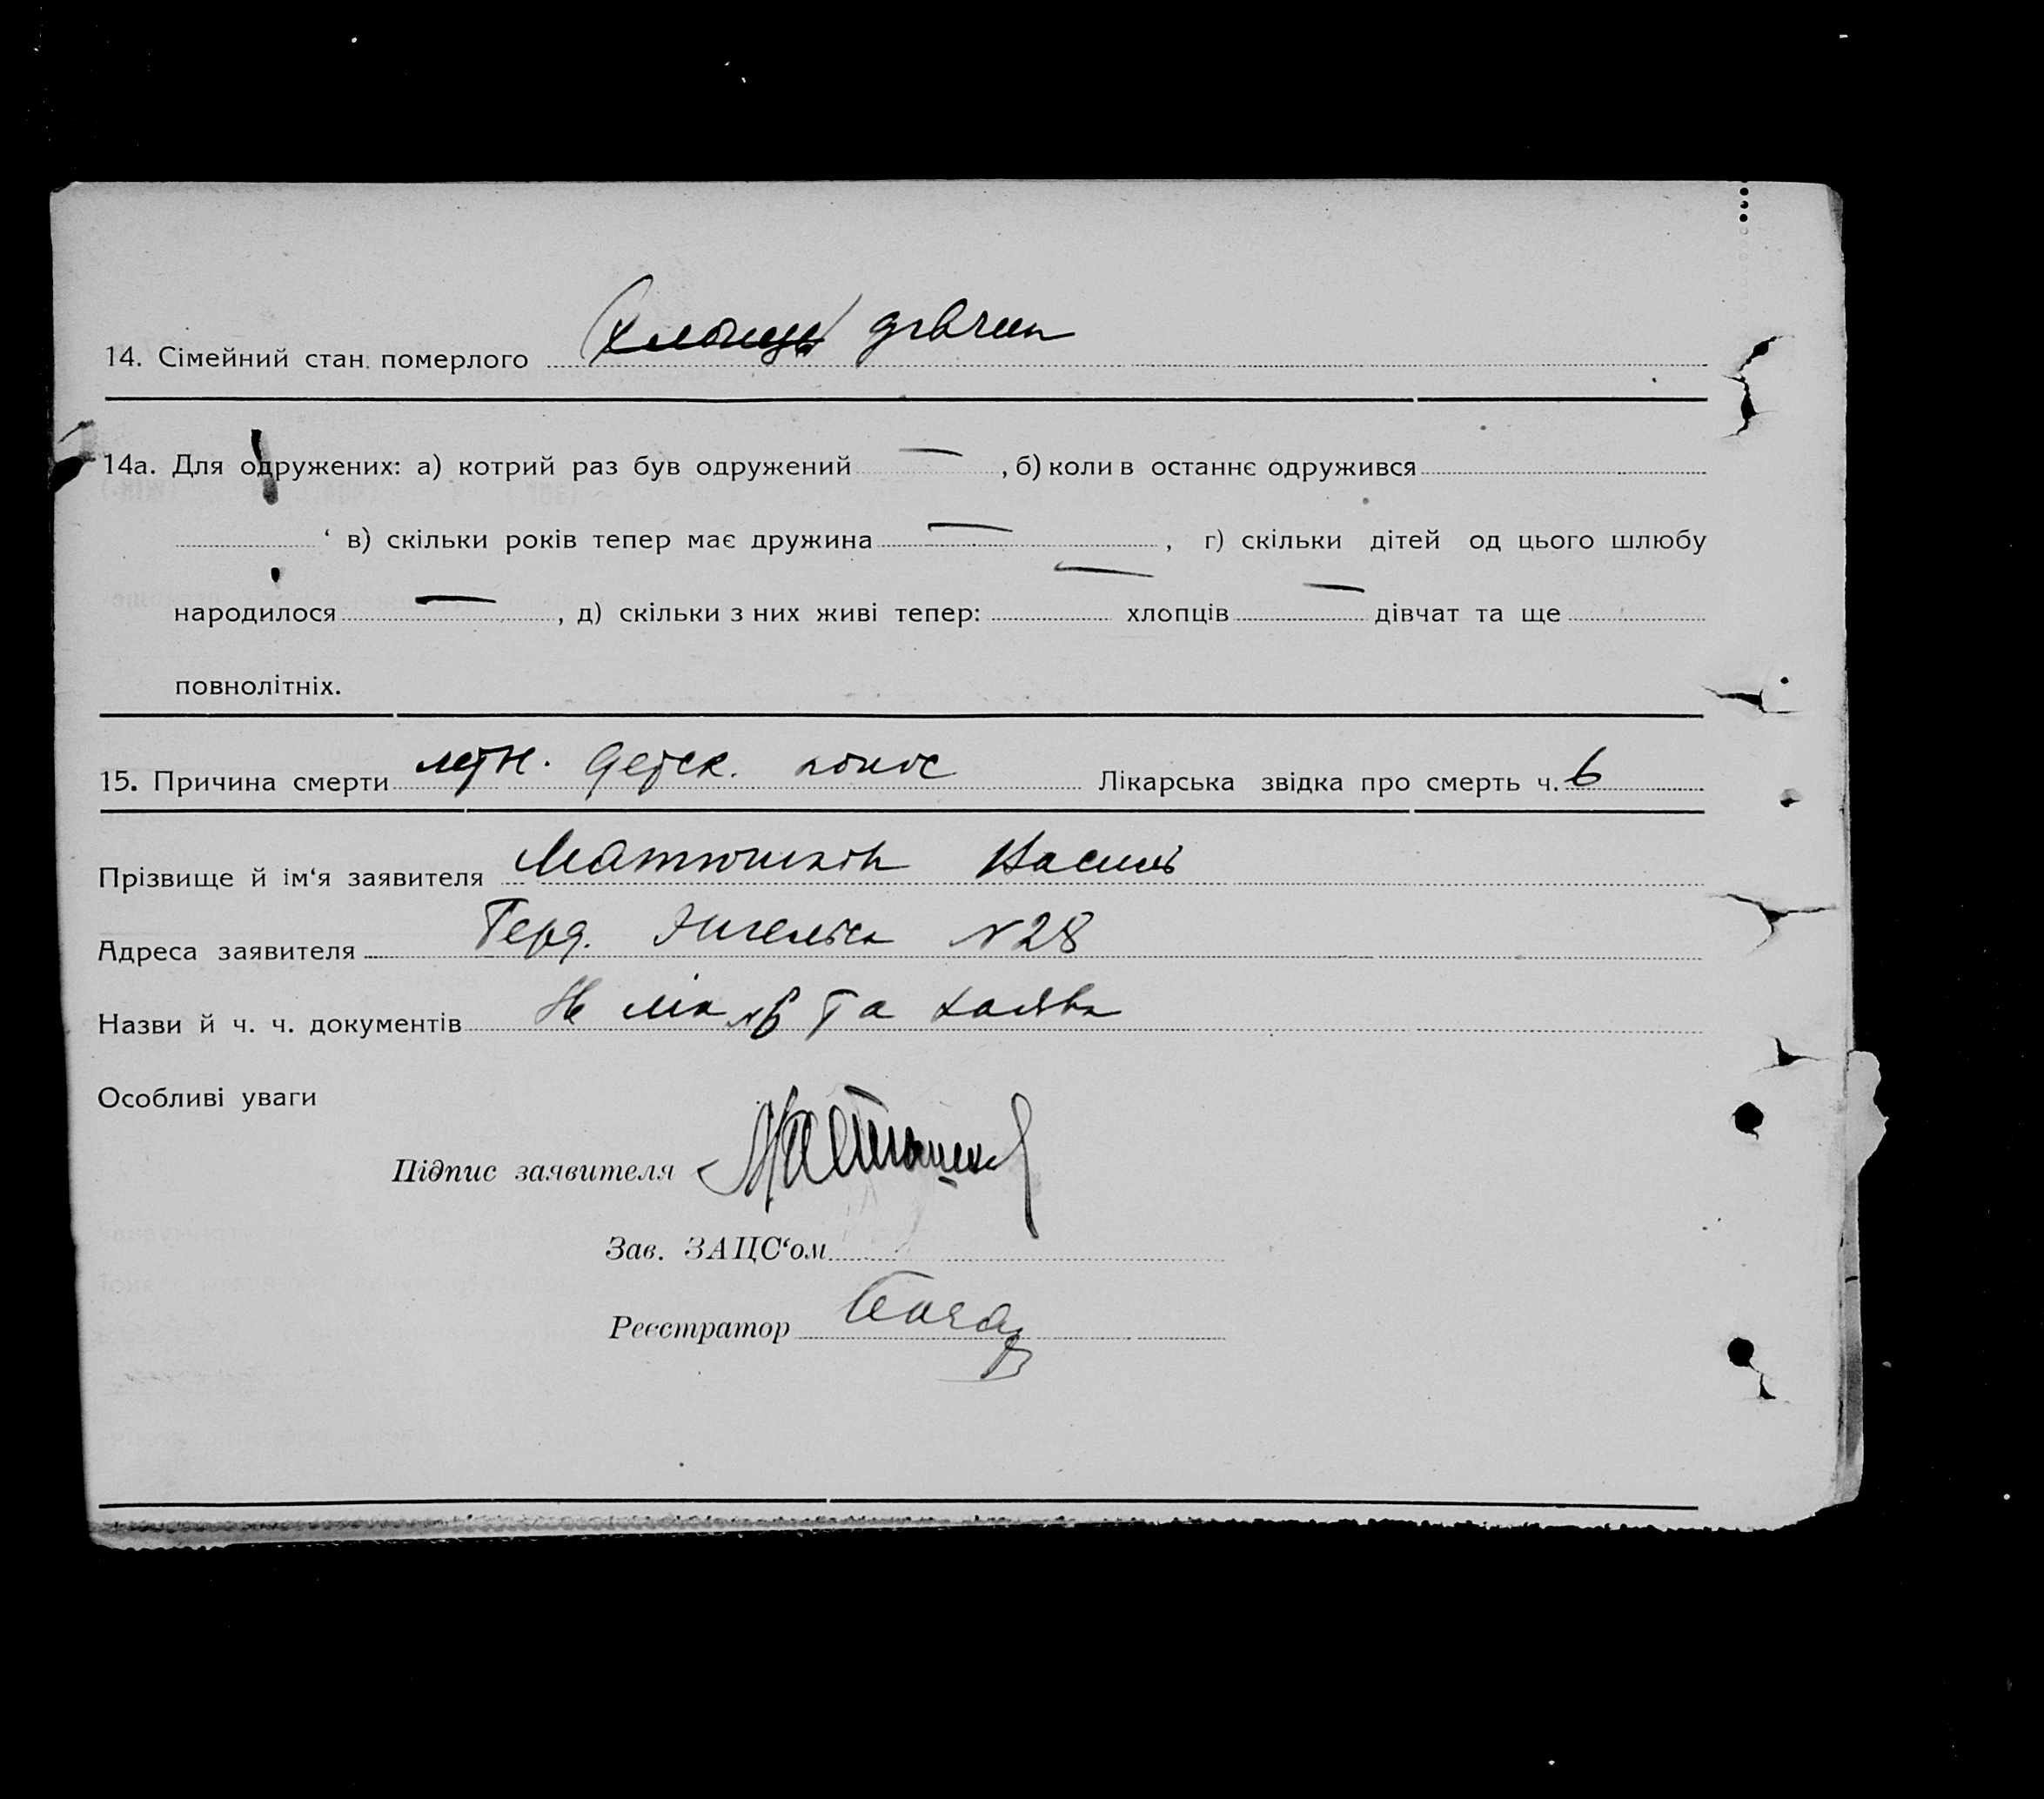 14. Сімейний стан померлого (хлопець) дівчин
14а. Для одружених: а) котрий раз був одружений — , б) коли в останнє одружився
‘ в) скільки років тепер має дружина — , г) скільки дітей од цього шлюбу
народилося — , д) скільки з них живі тепер: — хлопців — дівчат та ще
повнолітніх.
15. Причина смерти летн. детск. понос Лікарська звідка про смерть ч. 6
Прізвище й ім‘я заявителя Матюшкін Василь
Адреса заявителя Енгельса №28
Назви й ч. ч. документів лік №6 та заява
Особливі уваги
Підпис заявителя
Зав. ЗАЦС‘ом
Реєстратор